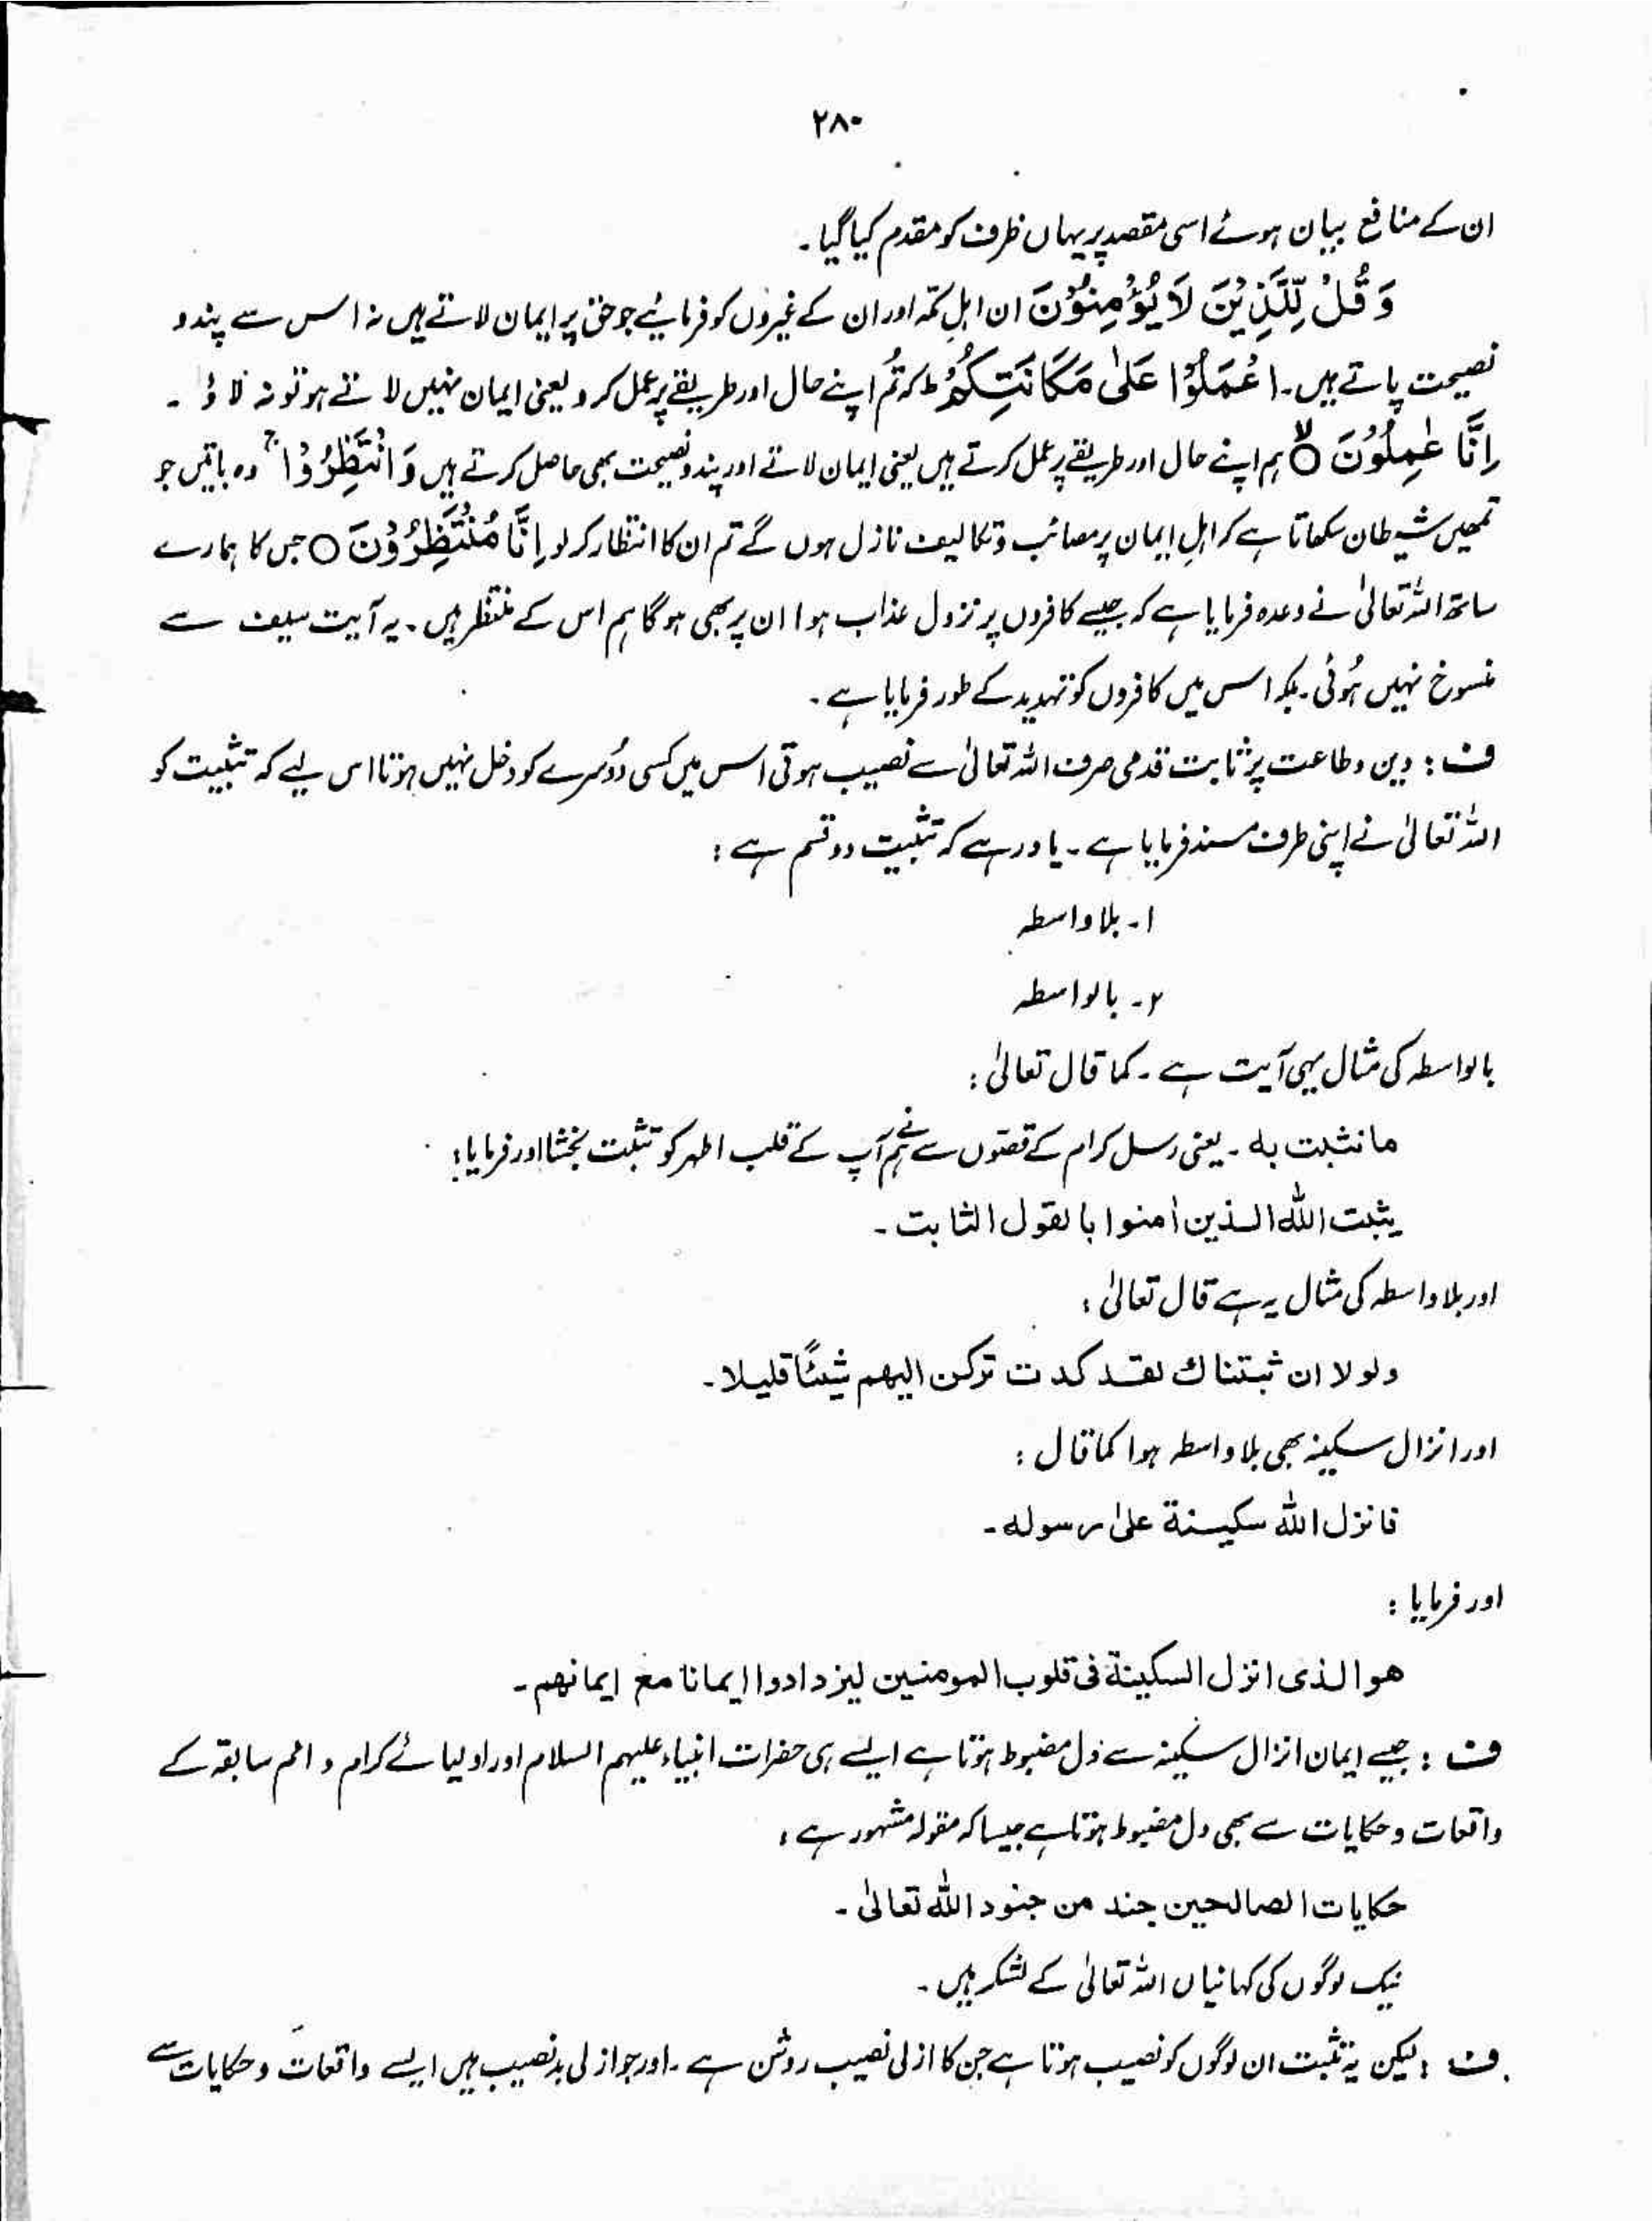 ۲۸۰
ان کے منافع بیان ہوئے اسی مقصد پر یہاں ظرف کو مقدم کیا گیا ۔
وَ قُلْ لِّلَّذِیْنَ لَا یُؤْمِنُوْنَ ان اہلِ مکّہ اور ان کے غیروں کو فرمائیے جو حق پر ایمان لاتے ہیں نہ اس سے پند و
نصیحت پاتے ہیں ۔ اعْمَلُوْا عَلٰی مَکَانَتِکُمْ ط کہ تُم اپنے حال اور طریقے پر عمل کرو یعنی ایمان نہیں لاتے ہو تو نہ لاؤ ۔
اِنَّا عٰمِلُوْنَ ○ لا ہم اپنے حال اور طریقے پر عمل کرتے ہیں یعنی ایمان لاتے اور پند و نصیحت بھی حاصل کرتے ہیں وَ انْتَظِرُوْا ج وہ باتیں جو
تمھیں شیطان سکھاتا ہے کہ اہلِ ایمان پر مصائب و تکالیف نازل ہوں گے تم ان کا انتظار کر لو اِنَّا مُنْتَظِرُوْنَ ○ جس کا ہمارے
ساتھ اللہ تعالیٰ نے وعدہ فرمایا ہے کہ جیسے کافروں پر نزول عذاب ہوا ان پر بھی ہوگا ہم اس کے منتظر ہیں ۔ یہ آیت سیف سے
منسوخ نہیں ہُوئی ۔ بلکہ اس میں کافروں کو تہدید کے طور فرمایا ہے ۔
ف : دین و طاعت پر ثابت قدمی صرف اللہ تعالیٰ سے نصیب ہوتی اس میں کسی دُوسرے کو دخل نہیں ہوتا اس لیے کہ تثبیت کو
اللہ تعالیٰ نے اپنی طرف مسند فرمایا ہے ۔ یاد رہے کہ تثبیت دو قسم ہے :
۱ ۔ بلا واسطہ
۲ ۔ بالواسطہ
بالواسطہ کی مثال یہی آیت ہے ۔ کما قال تعالیٰ :
ما نثبت به ۔ یعنی رسل کرام کے قصّوں سے ہم نے آپ کے قلب اطہر کو تثبت بخشا اور فرمایا :
یثبت الله الذین اٰمنوا بالقول الثابت ۔
اور بلا واسطہ کی مثال یہ ہے قال تعالیٰ :
ولو لا ان ثبتناك لقد کدت ترکن الیهم شیئًا قلیلا ۔
اور انزال سکینہ بھی بلا واسطہ ہوا کما قال :
فانزل الله سکینة علیٰ رسوله ۔
اور فرمایا :
هو الذی انزل السکینة فی قلوب المومنین لیزدادوا ایمانا مع ایمانهم ۔
ف : جیسے ایمان انزال سکینہ سے دل مضبوط ہوتا ہے ایسے ہی حضرات انبیاء علیہم السلام اور اولیائے کرام و امم سابقہ کے
واقعات و حکایات سے بھی دل مضبوط ہوتا ہے جیسا کہ مقولہ مشہور ہے :
حکایات الصالحین جند من جنود الله تعالیٰ ۔
نیک لوگوں کی کہانیاں اللہ تعالیٰ کے لشکر ہیں ۔
ف : لیکن یہ تثبت ان لوگوں کو نصیب ہوتا ہے جن کا ازلی نصیب روشن ہے ۔ اور جو ازلی بد نصیب ہیں ایسے واقعات و حکایات سے